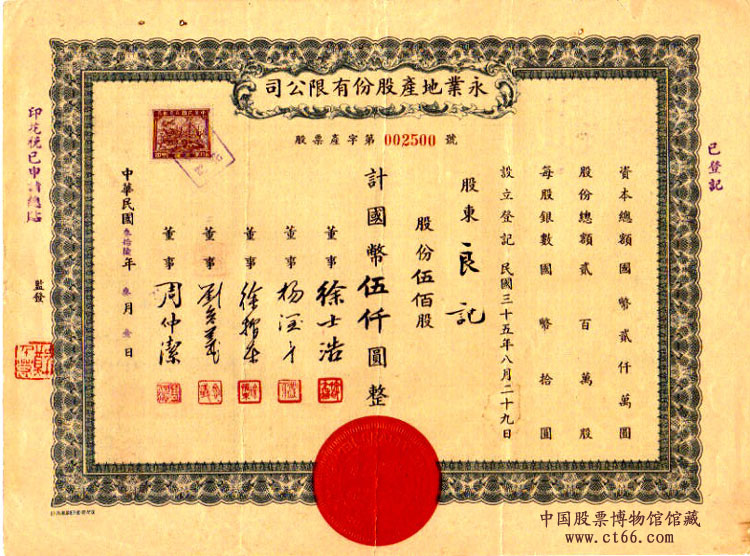 永業地產股份有限公司
股票產字第 002500 號
資本總額國幣貳仟萬圓
股份總額貳百萬股
每股銀數國幣拾圓
設立登記民國三十五年八月二十九日
股東 良記
股份伍佰股
計國幣伍仟圓整
董事 徐士浩
董事 楊
董事 徐
董事 劉
董事 周仲潔
中華民國叁拾陸年叁月壹日
已登記
印花稅已申請總貼
監發
中国股票博物馆馆藏
www.ct66.com